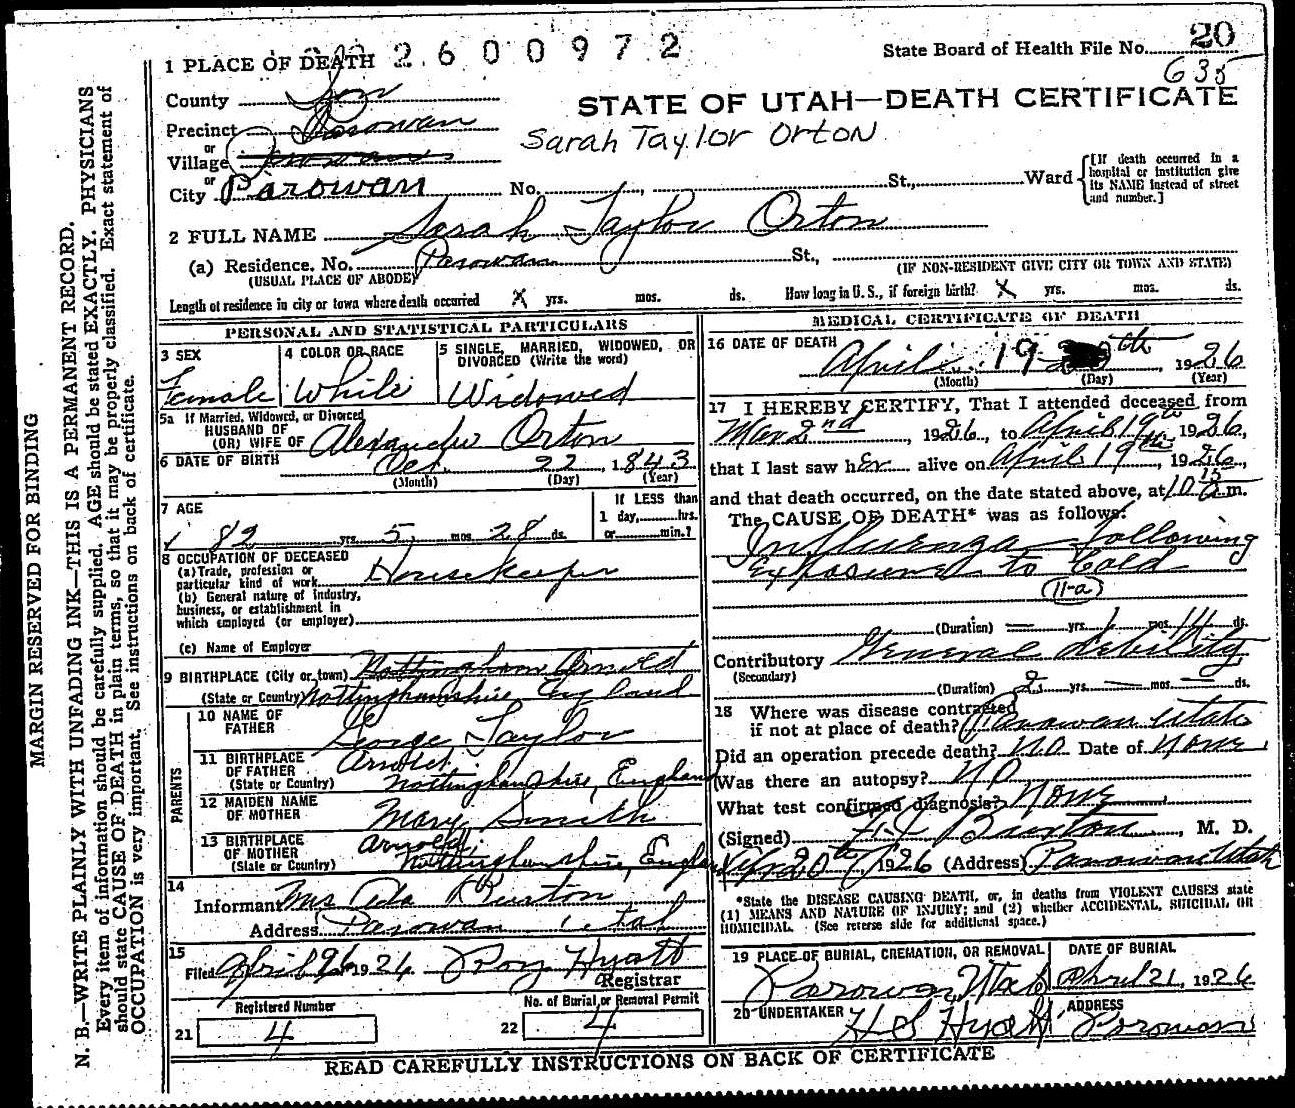 MARGIN RESERVED FOR BINDING
N. B.—WRITE PLAINLY WITH UNFADING INK—THIS IS A PERMANENT RECORD.
Every item of information should be carefully supplied. AGE should be stated EXACTLY. PHYSICIANS
should state CAUSE OF DEATH in plain terms, so that it may be properly classified. Exact statement of
OCCUPATION is very important. See instructions on back of certificate.
1 PLACE OF DEATH 2600972
State Board of Health File No. 20
635
County Iron
STATE OF UTAH—DEATH CERTIFICATE
Precinct Parowan
Sarah Taylor Orton
or
Village
or
City Parowan No. St., Ward
[If death occurred in a
hospital or institution give
its NAME instead of street
and number.]
2 FULL NAME Sarah Taylor Orton
(a) Residence. No. Parowan St.,
(USUAL PLACE OF ABODE)
(IF NON-RESIDENT GIVE CITY OR TOWN AND STATE)
Length of residence in city or town where death occurred X yrs. mos. ds. How long in U. S., if foreign birth? X yrs. mos. ds.
PERSONAL AND STATISTICAL PARTICULARS
3 SEX
Female
4 COLOR OR RACE
White
5 SINGLE, MARRIED, WIDOWED, OR
DIVORCED (Write the word)
Widowed
5a If Married, Widowed, or Divorced
HUSBAND OF
(OR) WIFE OF Alexander Orton
6 DATE OF BIRTH Oct 22, 1843
(Month) (Day) (Year)
7 AGE
82 yrs. 5 mos. 28 ds.
If LESS than
1 day, hrs.
or min.?
8 OCCUPATION OF DECEASED
(a) Trade, profession or
particular kind of work Housekeeper
(b) General nature of industry,
business, or establishment in
which employed (or employer)
(c) Name of Employer
9 BIRTHPLACE (City or town) Nottingham Arnold
(State or Country) Nottinghamshire England
PARENTS
10 NAME OF
FATHER George Taylor
11 BIRTHPLACE
OF FATHER Arnold,
(State or Country) Nottinghamshire, England
12 MAIDEN NAME
OF MOTHER Mary Smith
13 BIRTHPLACE
OF MOTHER Arnold,
(State or Country) Nottinghamshire, England
14
Informant Mrs Ada Burton
Address Parowan Utah
15
Filed April 26 1926 Roy Hyatt
Registrar
Registered Number
21 4
No. of Burial or Removal Permit
22 4
MEDICAL CERTIFICATE OF DEATH
16 DATE OF DEATH
April 19 th 1926
(Month) (Day) (Year)
17 I HEREBY CERTIFY, That I attended deceased from
Mar 2nd, 1926, to April 19th 1926,
that I last saw her alive on April 19th, 1926,
and that death occurred, on the date stated above, at 10 15 a.m.
The CAUSE OF DEATH* was as follows:
Influenza following
Exposure to Cold
(11-a)
(Duration) — yrs. 1 mos. 14 ds.
Contributory General debility
(Secondary)
(Duration) 2 yrs. — mos. — ds.
18 Where was disease contracted
if not at place of death? Parowan Utah
Did an operation precede death? No Date of None
Was there an autopsy? No
What test confirmed diagnosis? None
(Signed) Burton, M. D.
Apr 20th 1926 (Address) Parowan Utah
*State the DISEASE CAUSING DEATH, or, in deaths from VIOLENT CAUSES state
(1) MEANS AND NATURE OF INJURY; and (2) whether ACCIDENTAL, SUICIDAL OR
HOMICIDAL. (See reverse side for additional space.)
19 PLACE OF BURIAL, CREMATION, OR REMOVAL
Parowan, Utah
DATE OF BURIAL
April 21, 1926
20 UNDERTAKER H S Hyatt
ADDRESS
Parowan
READ CAREFULLY INSTRUCTIONS ON BACK OF CERTIFICATE